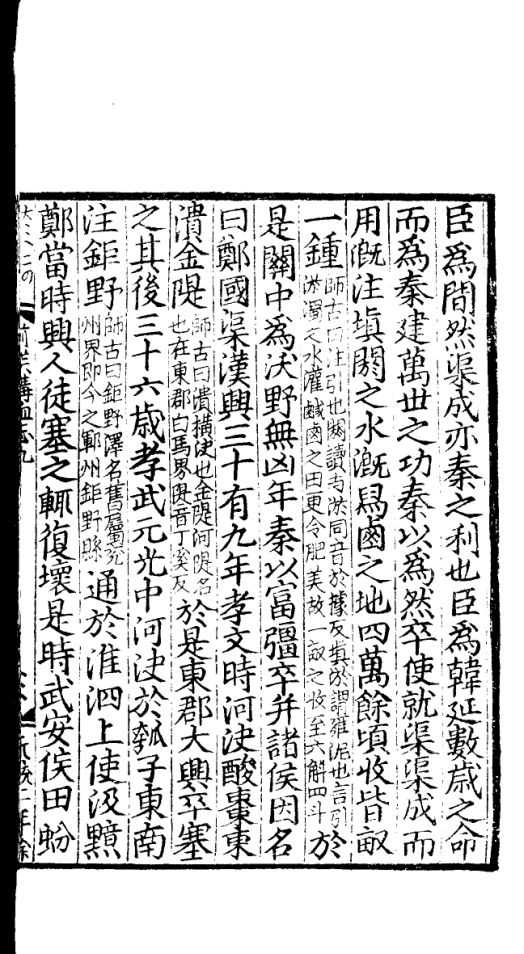 臣爲間然渠成亦秦之利也臣爲韓延數歲之命
而爲秦建萬世之功秦以爲然卒使就渠渠成而
用溉注填閼之水溉舄鹵之地四萬餘頃收皆畝
一鍾師古曰注引也閼讀與淤同音於據反填淤謂雍泥也言引淤濁之水灌鹹鹵之田更令肥美故一畝之收至六斛四斗於
是關中爲沃野無凶年秦以富彊卒并諸侯因名
曰鄭國渠漢興三十有九年孝文時河決酸棗東
潰金隄師古曰潰橫決也金隄河隄名也在東郡白馬界隄音丁奚反於是東郡大興卒塞
之其後三十六歲孝武元光中河決於瓠子東南
注鉅野師古曰鉅野澤名舊屬兗州界即今之鄆州鉅野縣通於淮泗上使汲黯
鄭當時興人徒塞之輒復壞是時武安侯田蚡